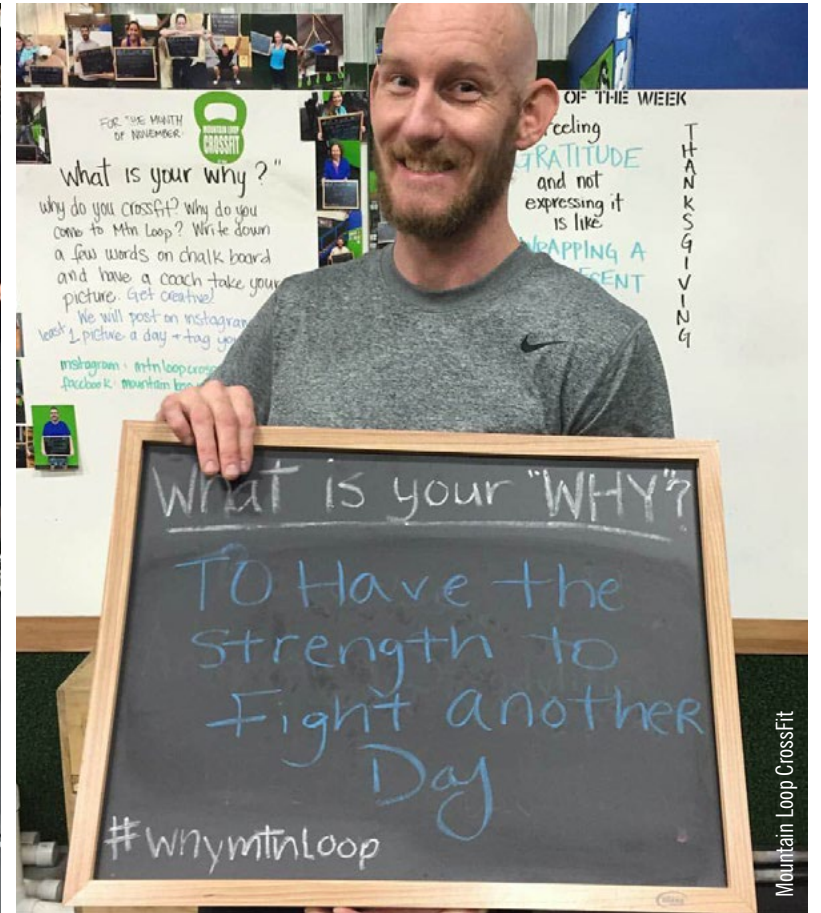 FOR THE MONTH
OF NOVEMBER
MOUNTAIN LOOP
CROSSFIT
"What is your why?"
why do you crossfit? Why do you
come to Mtn Loop? Write down
a few words on chalk board
and have a coach take your
picture. Get creative!
We will post on instagram
least 1 picture a day + tag you
instagram: mtnloopcross
facebook: mountain
OF THE WEEK
feeling
GRATITUDE
and not
expressing it
is like
WRAPPING A
THANKSGIVING
What is your "WHY"?
TO Have the
strength to
Fight another
Day
#whymtnloop
Mountain Loop CrossFit